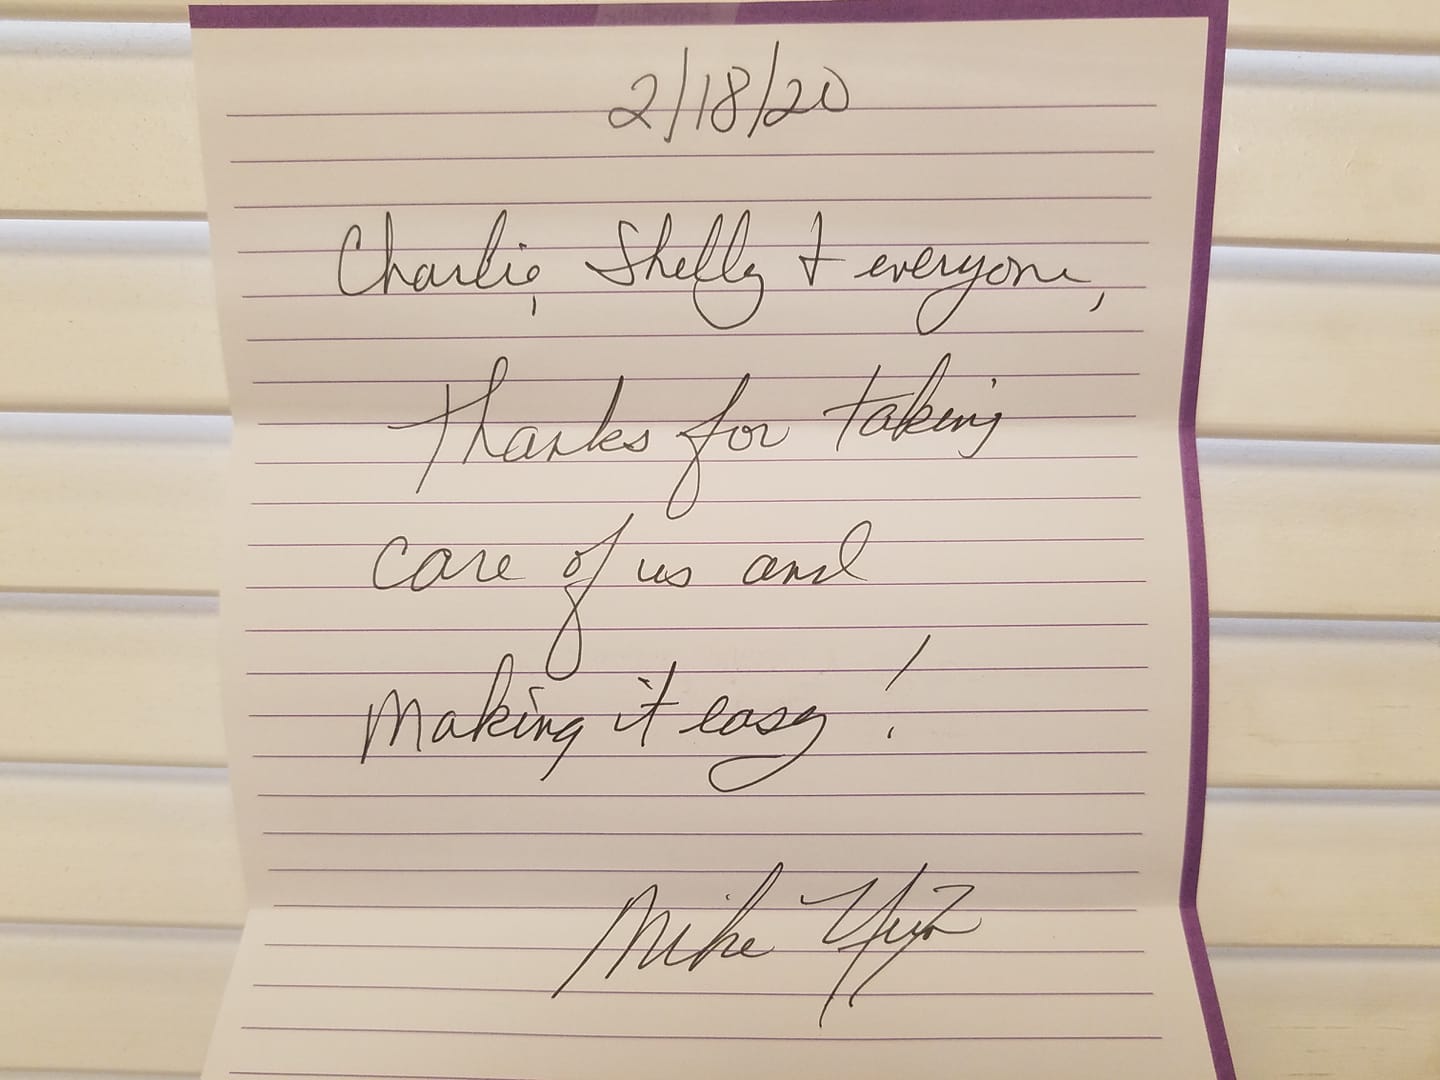 2/18/20
Charlie, Shelly & everyone,
Thanks for taking
care of us and
making it easy!
Mike